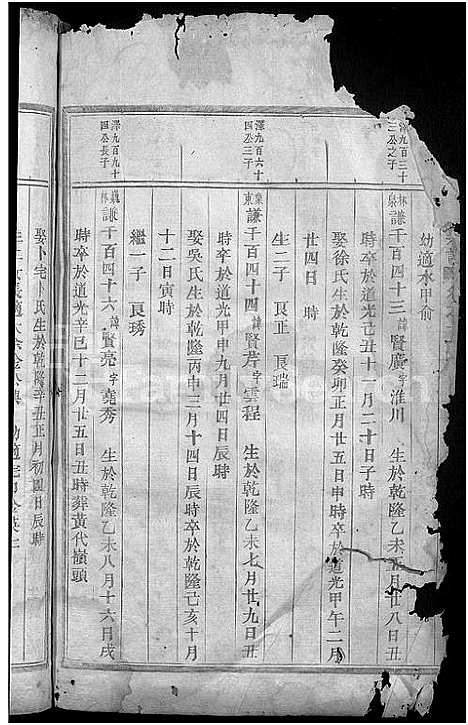 幼適水甲俞
澤九百三十
三公之子
林泉 謙千百四十三 諱賢廣 字淮川 生於乾隆乙未正月廿八日丑
時卒於道光己丑十一月二十日子時
娶徐氏生於乾隆癸卯正月廿五日申時卒於道光甲午二月
廿四日 時
生二子 良正 良瑞
澤九百六十
四公三子
東 謙千百四十四 諱賢岸 字雲程 生於乾隆乙未七月廿九日丑
時卒於道光甲申九月廿四日辰時
娶吳氏生於乾隆丙申三月十四日辰時卒於乾隆己亥十月
十二日寅時
繼一子 良琇
澤九百九十
四公長子
林 謙千百四十六 諱賢亮 字堯秀 生於乾隆乙未八月十六日戌
時卒於道光辛巳十二月廿五日丑時葬黃代嶺頭
娶卜宅卜氏生於乾隆辛丑正月初四日辰時